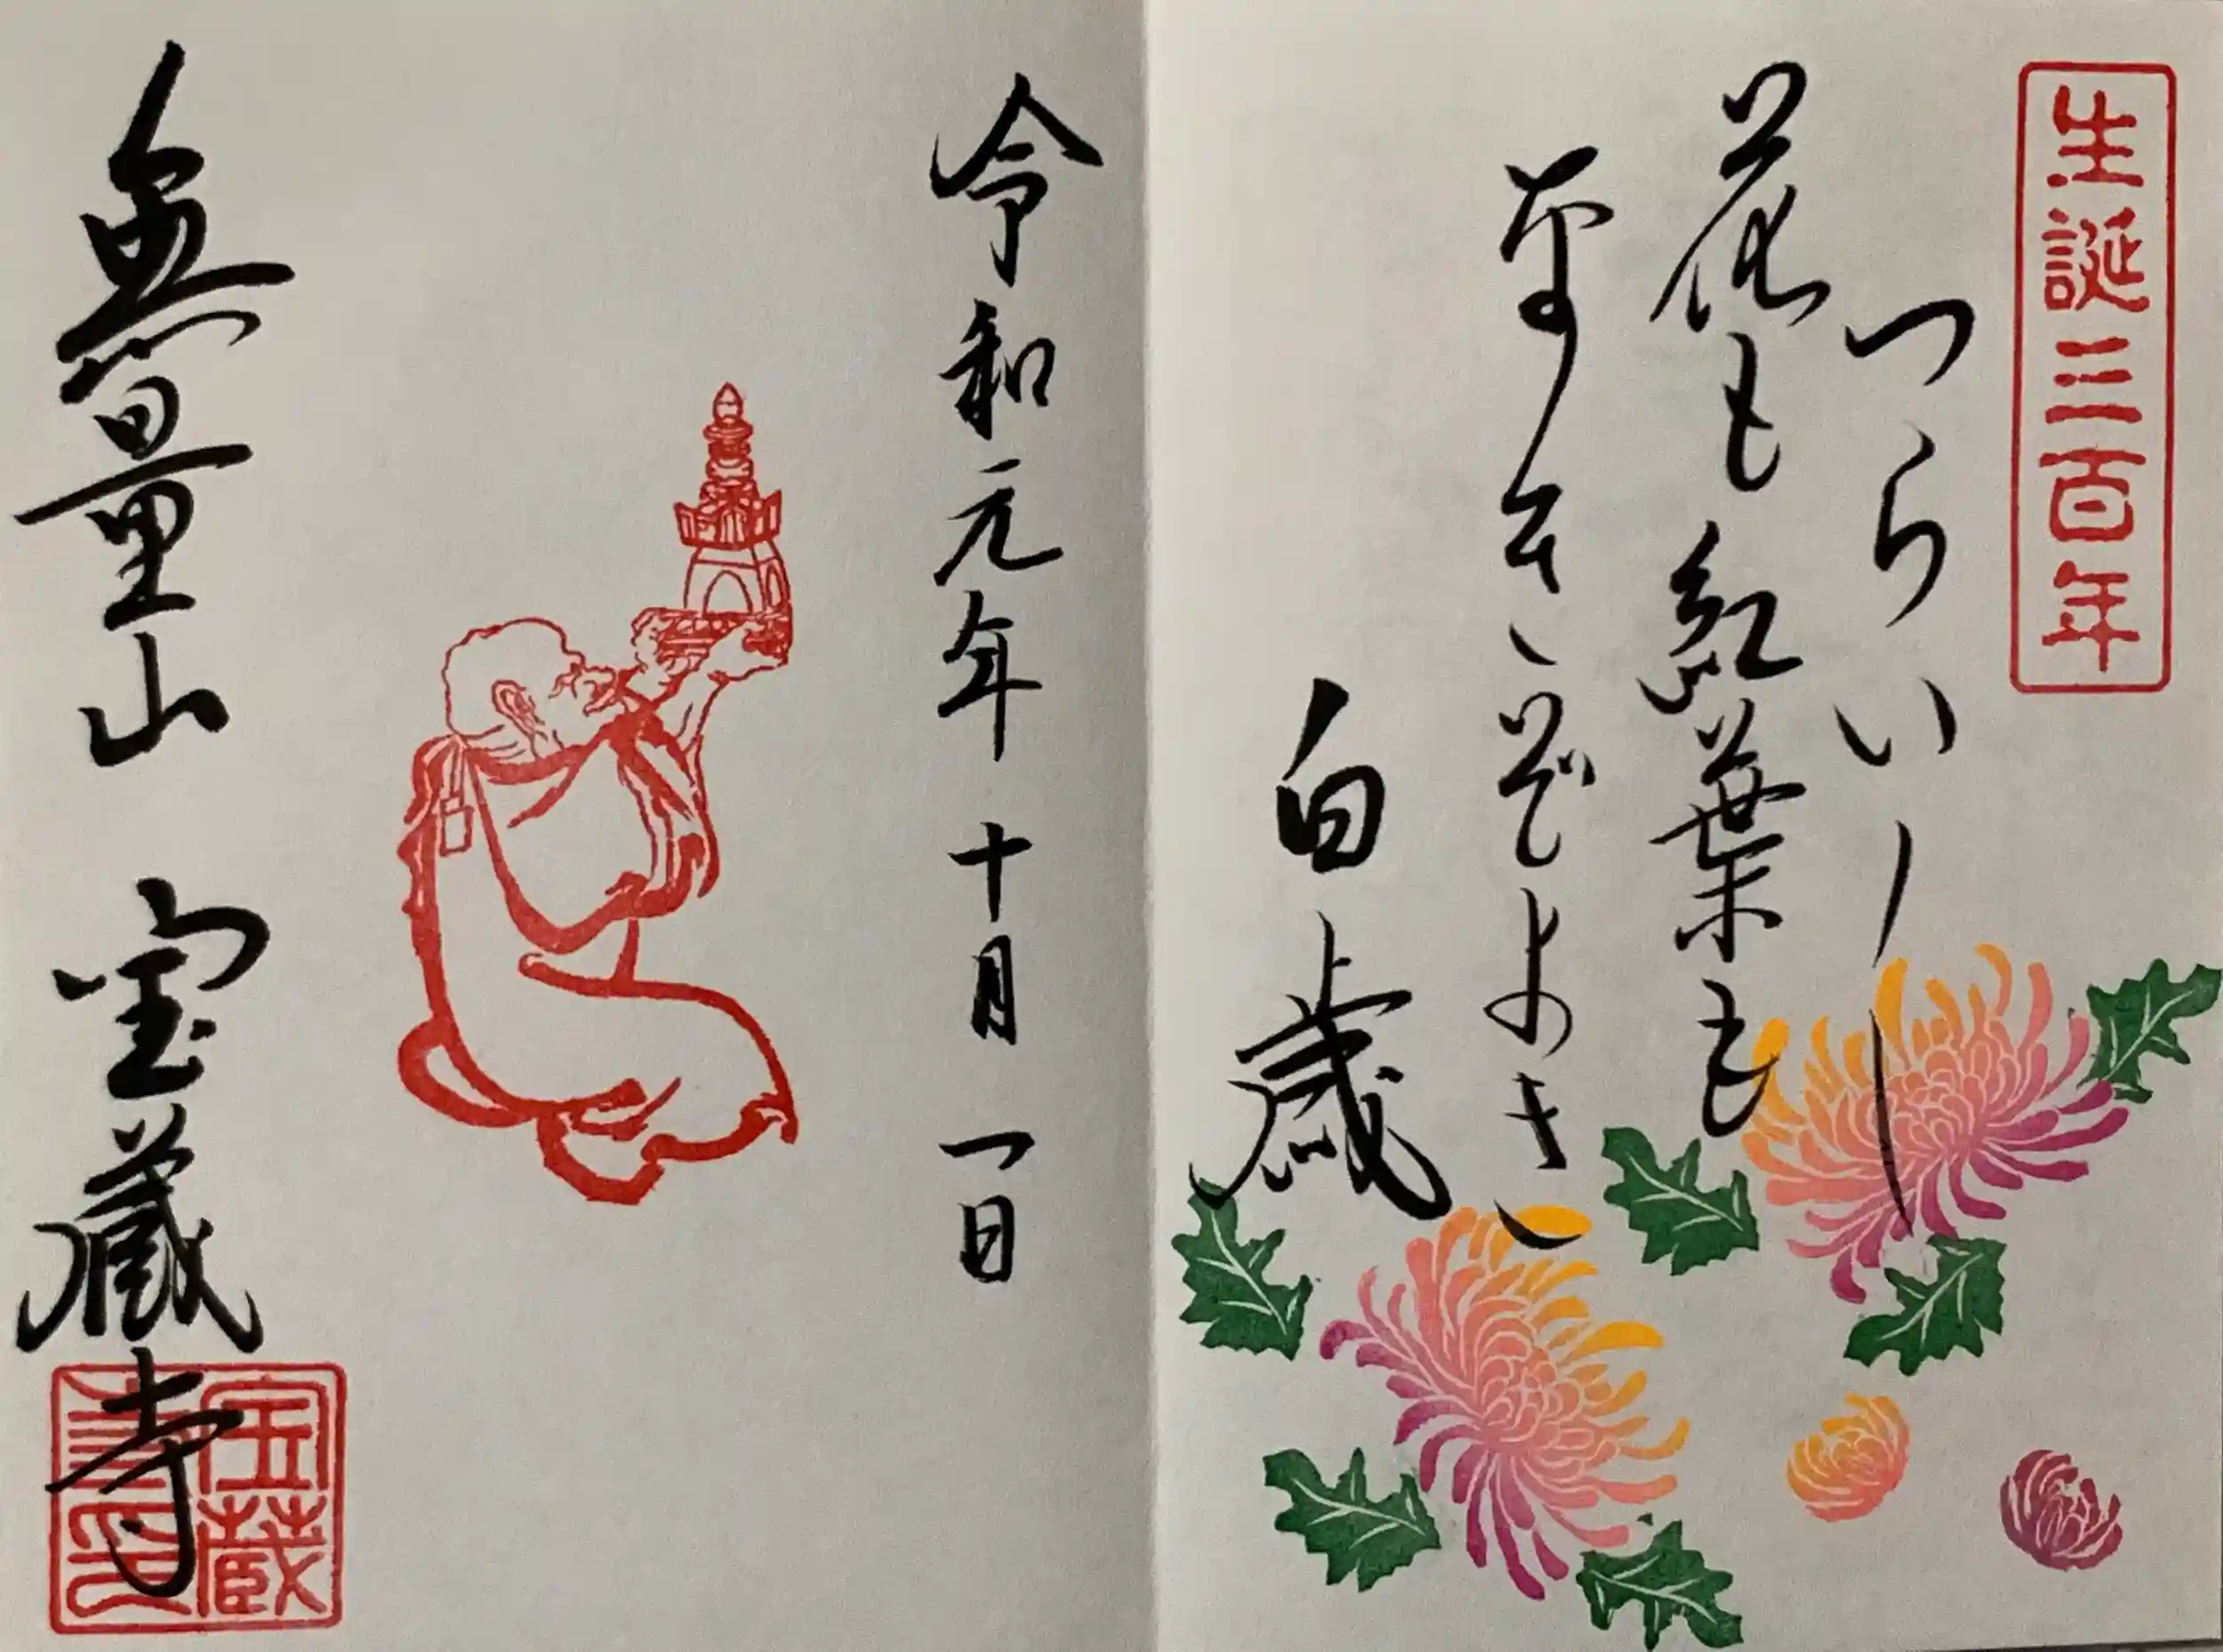 生誕三百年
つらい
花も紅葉も
ぞよき
白歳
令和元年 十月 一日
無量山 宝蔵寺
宝蔵
寺印